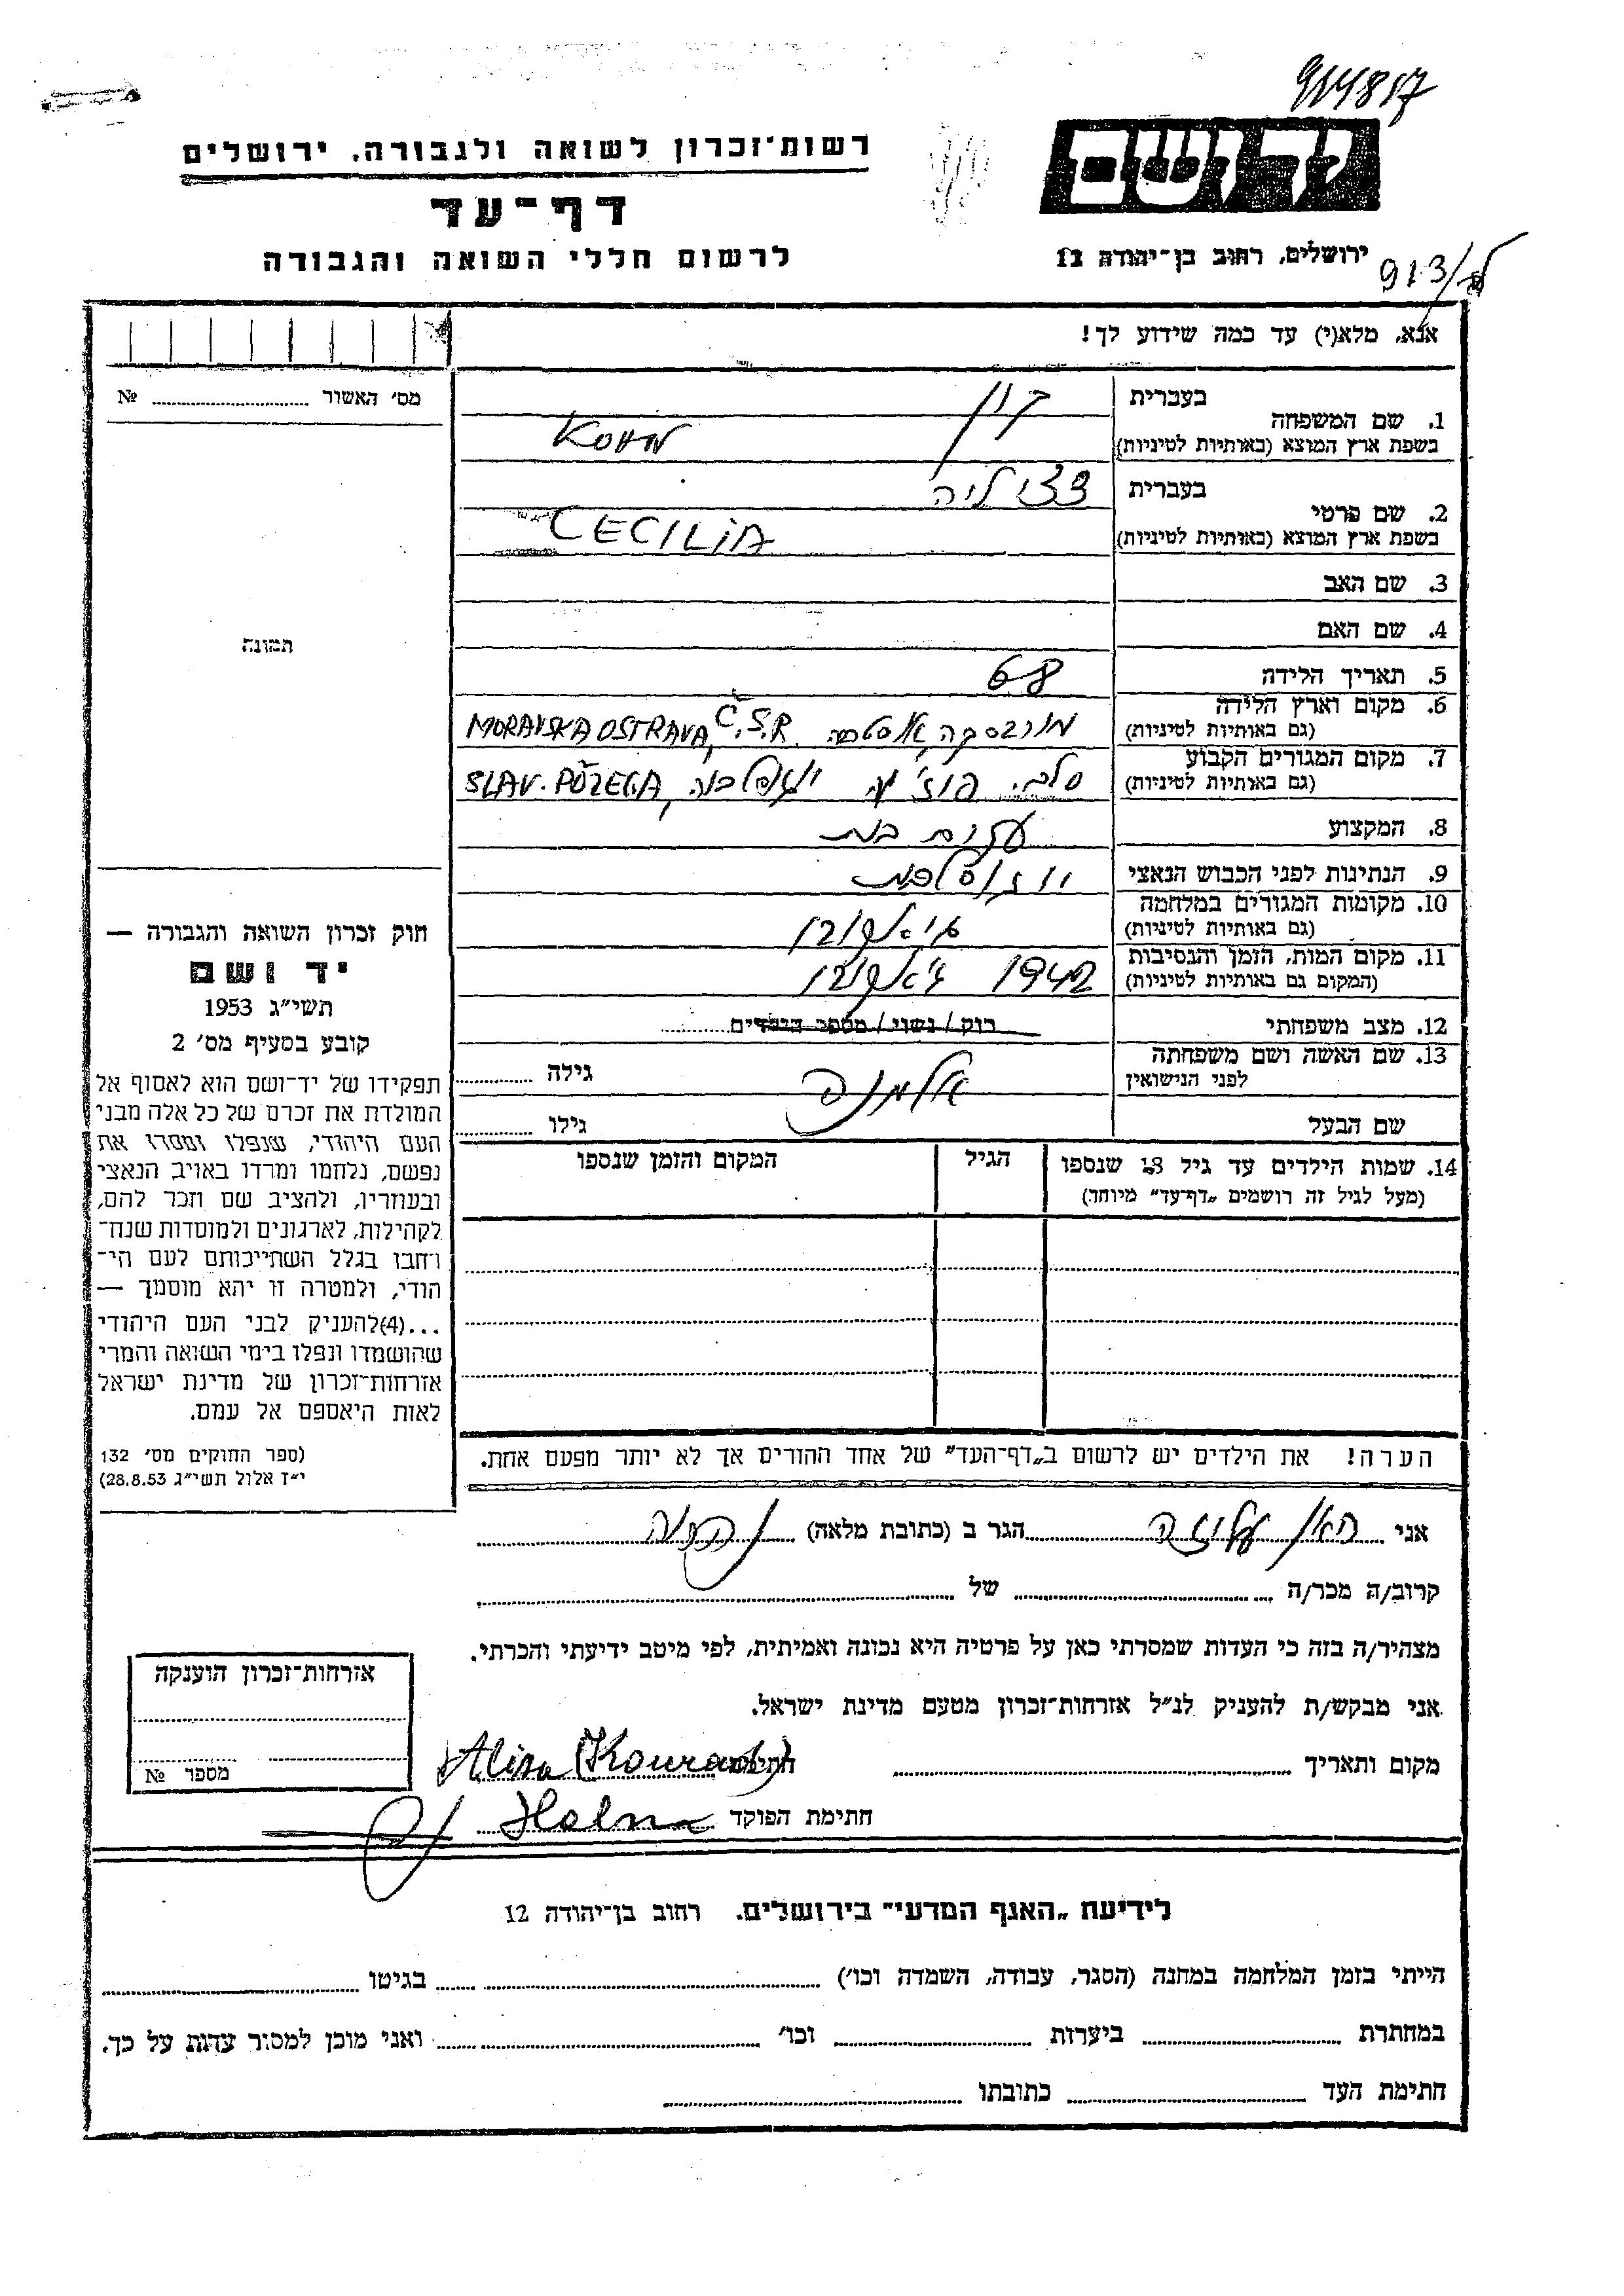 914817
רשות־זכרון לשואה ולגבורה, ירושלים
יד ושם
דף־עד
לרשום חללי השואה והגבורה
ירושלים, רחוב בן־יהודה 12
913/
אנא, מלא(י) עד כמה שידוע לך!
מס' האשור № 
1. שם המשפחה
בעברית
קון
בשפת ארץ המוצא (באותיות לטיניות)
KOHN
2. שם פרטי
בעברית
צציליה
בשפת ארץ המוצא (באותיות לטיניות)
CECILIA
3. שם האב
4. שם האם
תמונה
5. תאריך הלידה
68
6. מקום וארץ הלידה
(גם באותיות לטיניות)
מורבסקה אוסטרבה MORAVSKA OSTRAVA, Č.S.R.
7. מקום המגורים הקבוע
(גם באותיות לטיניות)
סלב. פוז'גה יוגוסלביה, SLAV. POŽEGA
8. המקצוע
עקרת בית
9. הנתינות לפני הכבוש הנאצי
יוגוסלבית
10. מקומות המגורים במלחמה
(גם באותיות לטיניות)
ג'אקובו
11. מקום המות, הזמן והנסיבות
(המקום גם באותיות לטיניות)
1942 ג'אקובו
12. מצב משפחתי
רוק / נשוי / מספר הילדים
13. שם האשה ושם משפחתה
לפני הנישואין
גילה
אלמנה
שם הבעל
גילו
14. שמות הילדים עד גיל 18 שנספו
(מעל לגיל זה רושמים „דף־עד" מיוחד)
הגיל
המקום והזמן שנספו
חוק זכרון השואה והגבורה —
יד ושם
תשי"ג 1953
קובע בסעיף מס' 2
תפקידו של יד־ושם הוא לאסוף אל
המולדת את זכרם של כל אלה מבני
העם היהודי, שנפלו ומסרו את
נפשם, נלחמו ומרדו באויב הנאצי
ובעוזריו, ולהציב שם וזכר להם,
לקהילות, לארגונים ולמוסדות שנח־
רחבו בגלל השתייכותם לעם הי־
הודי, ולמטרה זו יהא מוסמך —
...(4)להעניק לבני העם היהודי
שהושמדו ונפלו בימי השואה והמרי
אזרחות־זכרון של מדינת ישראל
לאות היאספם אל עמם.
(ספר החוקים מס' 132
י"ז אלול תשי"ג 28.8.53)
הערה! את הילדים יש לרשום ב„דף־העד" של אחד ההורים אך לא יותר מפעם אחת.
אני האן עליזה הגר ב (כתובת מלאה)
קרוב/ה מכר/ה של
מצהיר/ה בזה כי העדות שמסרתי כאן על פרטיה היא נכונה ואמיתית, לפי מיטב ידיעתי והכרתי.
אני מבקש/ת להעניק לנ"ל אזרחות־זכרון מטעם מדינת ישראל.
מקום ותאריך
חתימה Alisa (Konrad)
חתימת הפוקד Hahn
אזרחות־זכרון הוענקה
מספר №
לידיעת „האגף המדעי" בירושלים. רחוב בן־יהודה 12
הייתי בזמן המלחמה במחנה (הסגר, עבודה, השמדה וכו') בגיטו
במחתרת ביערות וכו' ואני מוכן למסור עדות על כך.
חתימת העד כתובתו